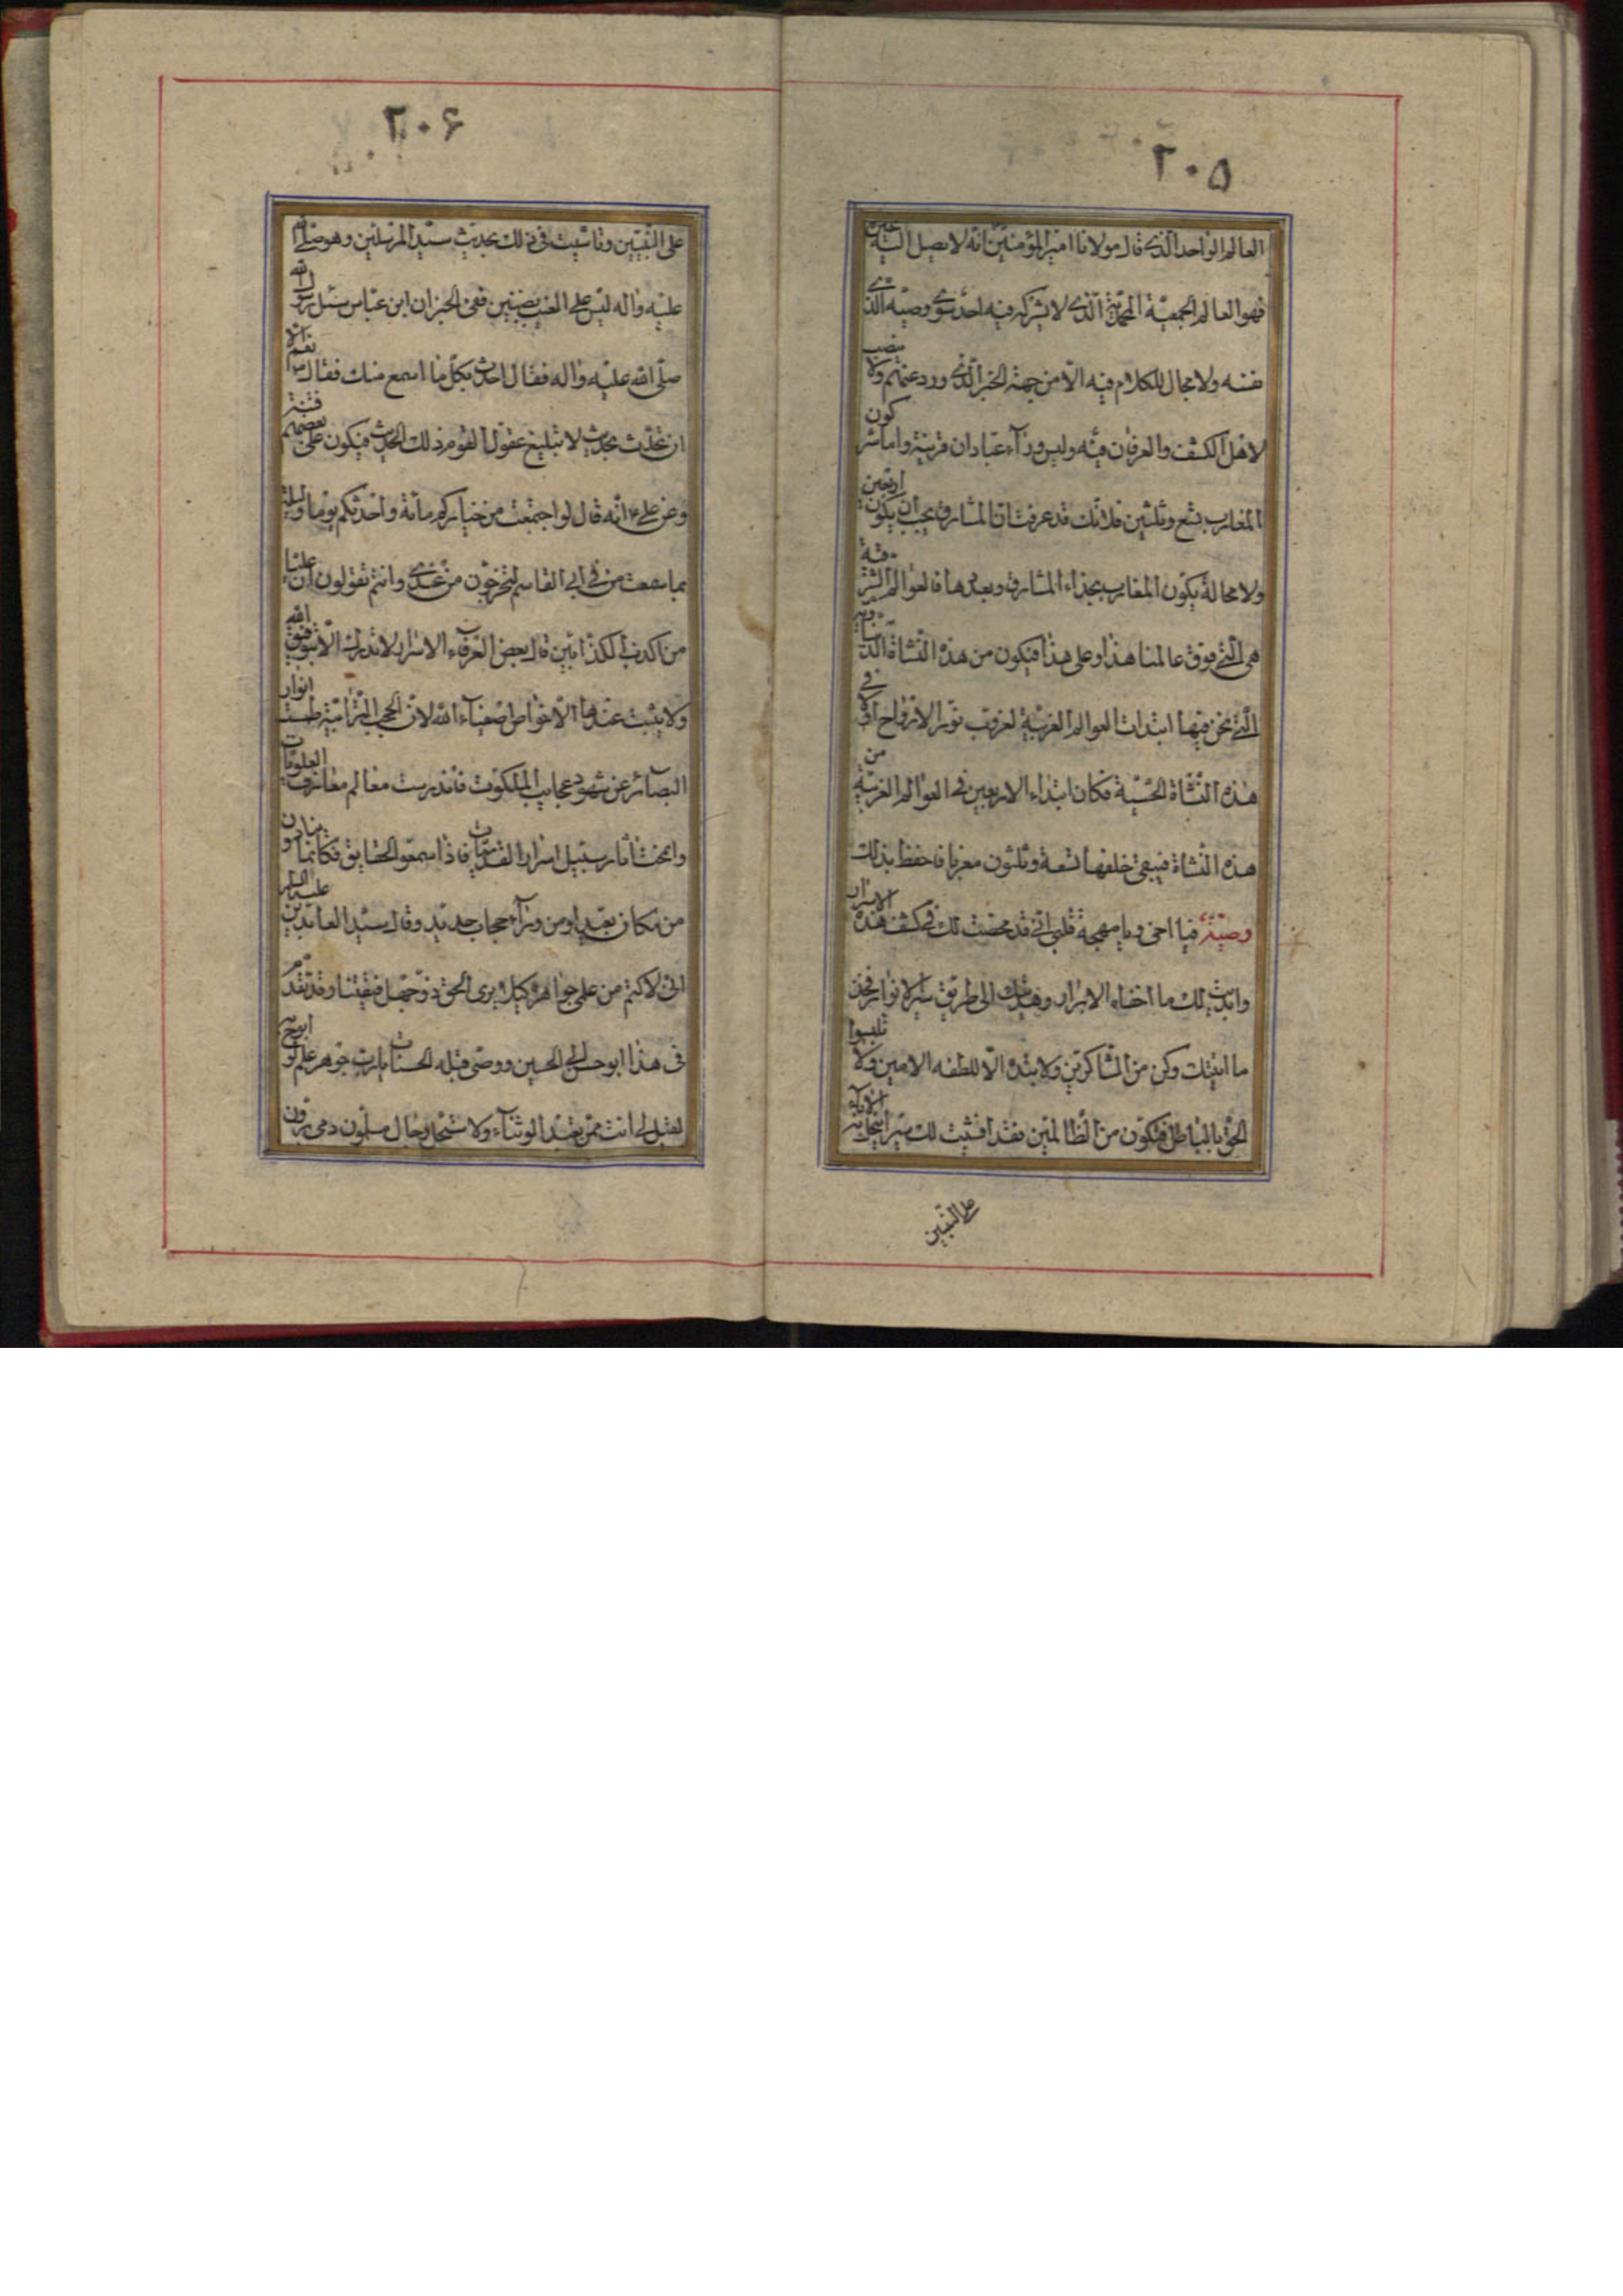 ٢٠٥
العالم الواحد الّذى قال مولانا امير المؤمنين انّه لا يصل اليه غيرى
فهو العالم الجمعيّة المحمّديّة الّذى لا يشركه فيه احد سوى وصيّه الّذى
نفسه ولا مجال للكلام فيه الّا من جهة الخبر الّذى ورد عنهم ولا منصب
لاهل الكشف والعرفان فيه وليس وراء عبّادان قرية واما سرّ كون
المغارب تسع وثلثين فلانّك قد عرفت انّ المشارق يجب ان يكون اربعين
ولا محالة يكون المغارب بحذاء المشارق وبعددها فالعوالم الشرقية
هى الّتى فوق عالمنا هذا وعلى هذا فيكون من هذه النّشاة الدّنياويّة
الّتى نحن فيها ابتدات العوالم الغربيّة لغروب نور الارواح فى افق
هذه النّشاة الحسّيّة فكان ابتداء الاربعين فى العوالم الغربيّة من
هذه النّشاة فيبقى خلفها تسعة وثلثون مغربا فاحفظ بذلك
وصيّة فيا اخى ويا مهجة قلبى انّى قد محضت لك فى كشف هذه الاسرار
وابديت لك ما اخفاه الابرار وهديتك الى طريق سير الانوار فخذ
ما اتيتك وكن من الشّاكرين ولا تبده الّا للطفه الامين ولا تلبسوا
الحقّ بالباطل فتكون من الظّالمين فقد افشيت لك سرّا
على النّبيين
٢٠٦
على النّبيّين وتاسّيت فى ذلك بحديث سيّد المرسلين وهو صلّى الله
عليه واله ليس على الغيب بضنين ففى الخبر ان ابن عبّاس سئل رسول الله
صلّى الله عليه واله فقال احدث بكلّ ما اسمع منك فقال نعم الّا
ان تحدّث بحديث لا تبليغ عقول القوم ذلك الحديث فيكون على بعضهم فتنة
وعن على ع انّه قال لو اجتمعت من خياركم مائة واحدثكم يوما وليلة
بما سمعت من فى ابى القاسم لتخرجون من عندى وانتم تقولون ان عليّا
من اكذب الكذّابين قال بعض العرفاء الاسرار لا تدرك الّا بتوفيق الله
ولا يثبت عندها الّا خواص اصفياء الله لان الحجب الترابيّة طمست انوار
البصائر عن شهود عجايب الملكوت فاندرست معالم معارف العلويّات
وانمحت اثار سبيل اسرار القدسيّات فاذا سمعوا الحقايق فكانّما ينادون
من مكان بعيد او من وراء حجاب حديد وقال سيّد العابدين عليه السلام
انّى لاكتم من علمى جواهره كيلا يرى الحقّ ذو جهل فيفتتنا وقد تقدّم
فى هذا ابو حسن الى الحسين ووصّى قبله الحسنا يا ربّ جوهر علم لو ابوح به
لقيل لى انت ممّن يعبد الوثناء ولا ستحلّ رجال مسلمون دمى يرون